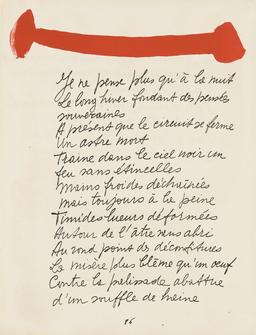 Je ne pense plus qu'à la nuit
Le long hiver fondant des pensées
souveraines
A présent que le circuit se ferme
Un astre mort
Traine dans le ciel noir un
feu sans étincelles
Mains froides déchaînées
mais toujours à la peine
Timides lueurs déformées
Autour de l'âtre sans abri
Au rond point de déconfitures
La misère plus blême qu'un oeuf
Contre la palissade abattue
d'un souffle de haine
96